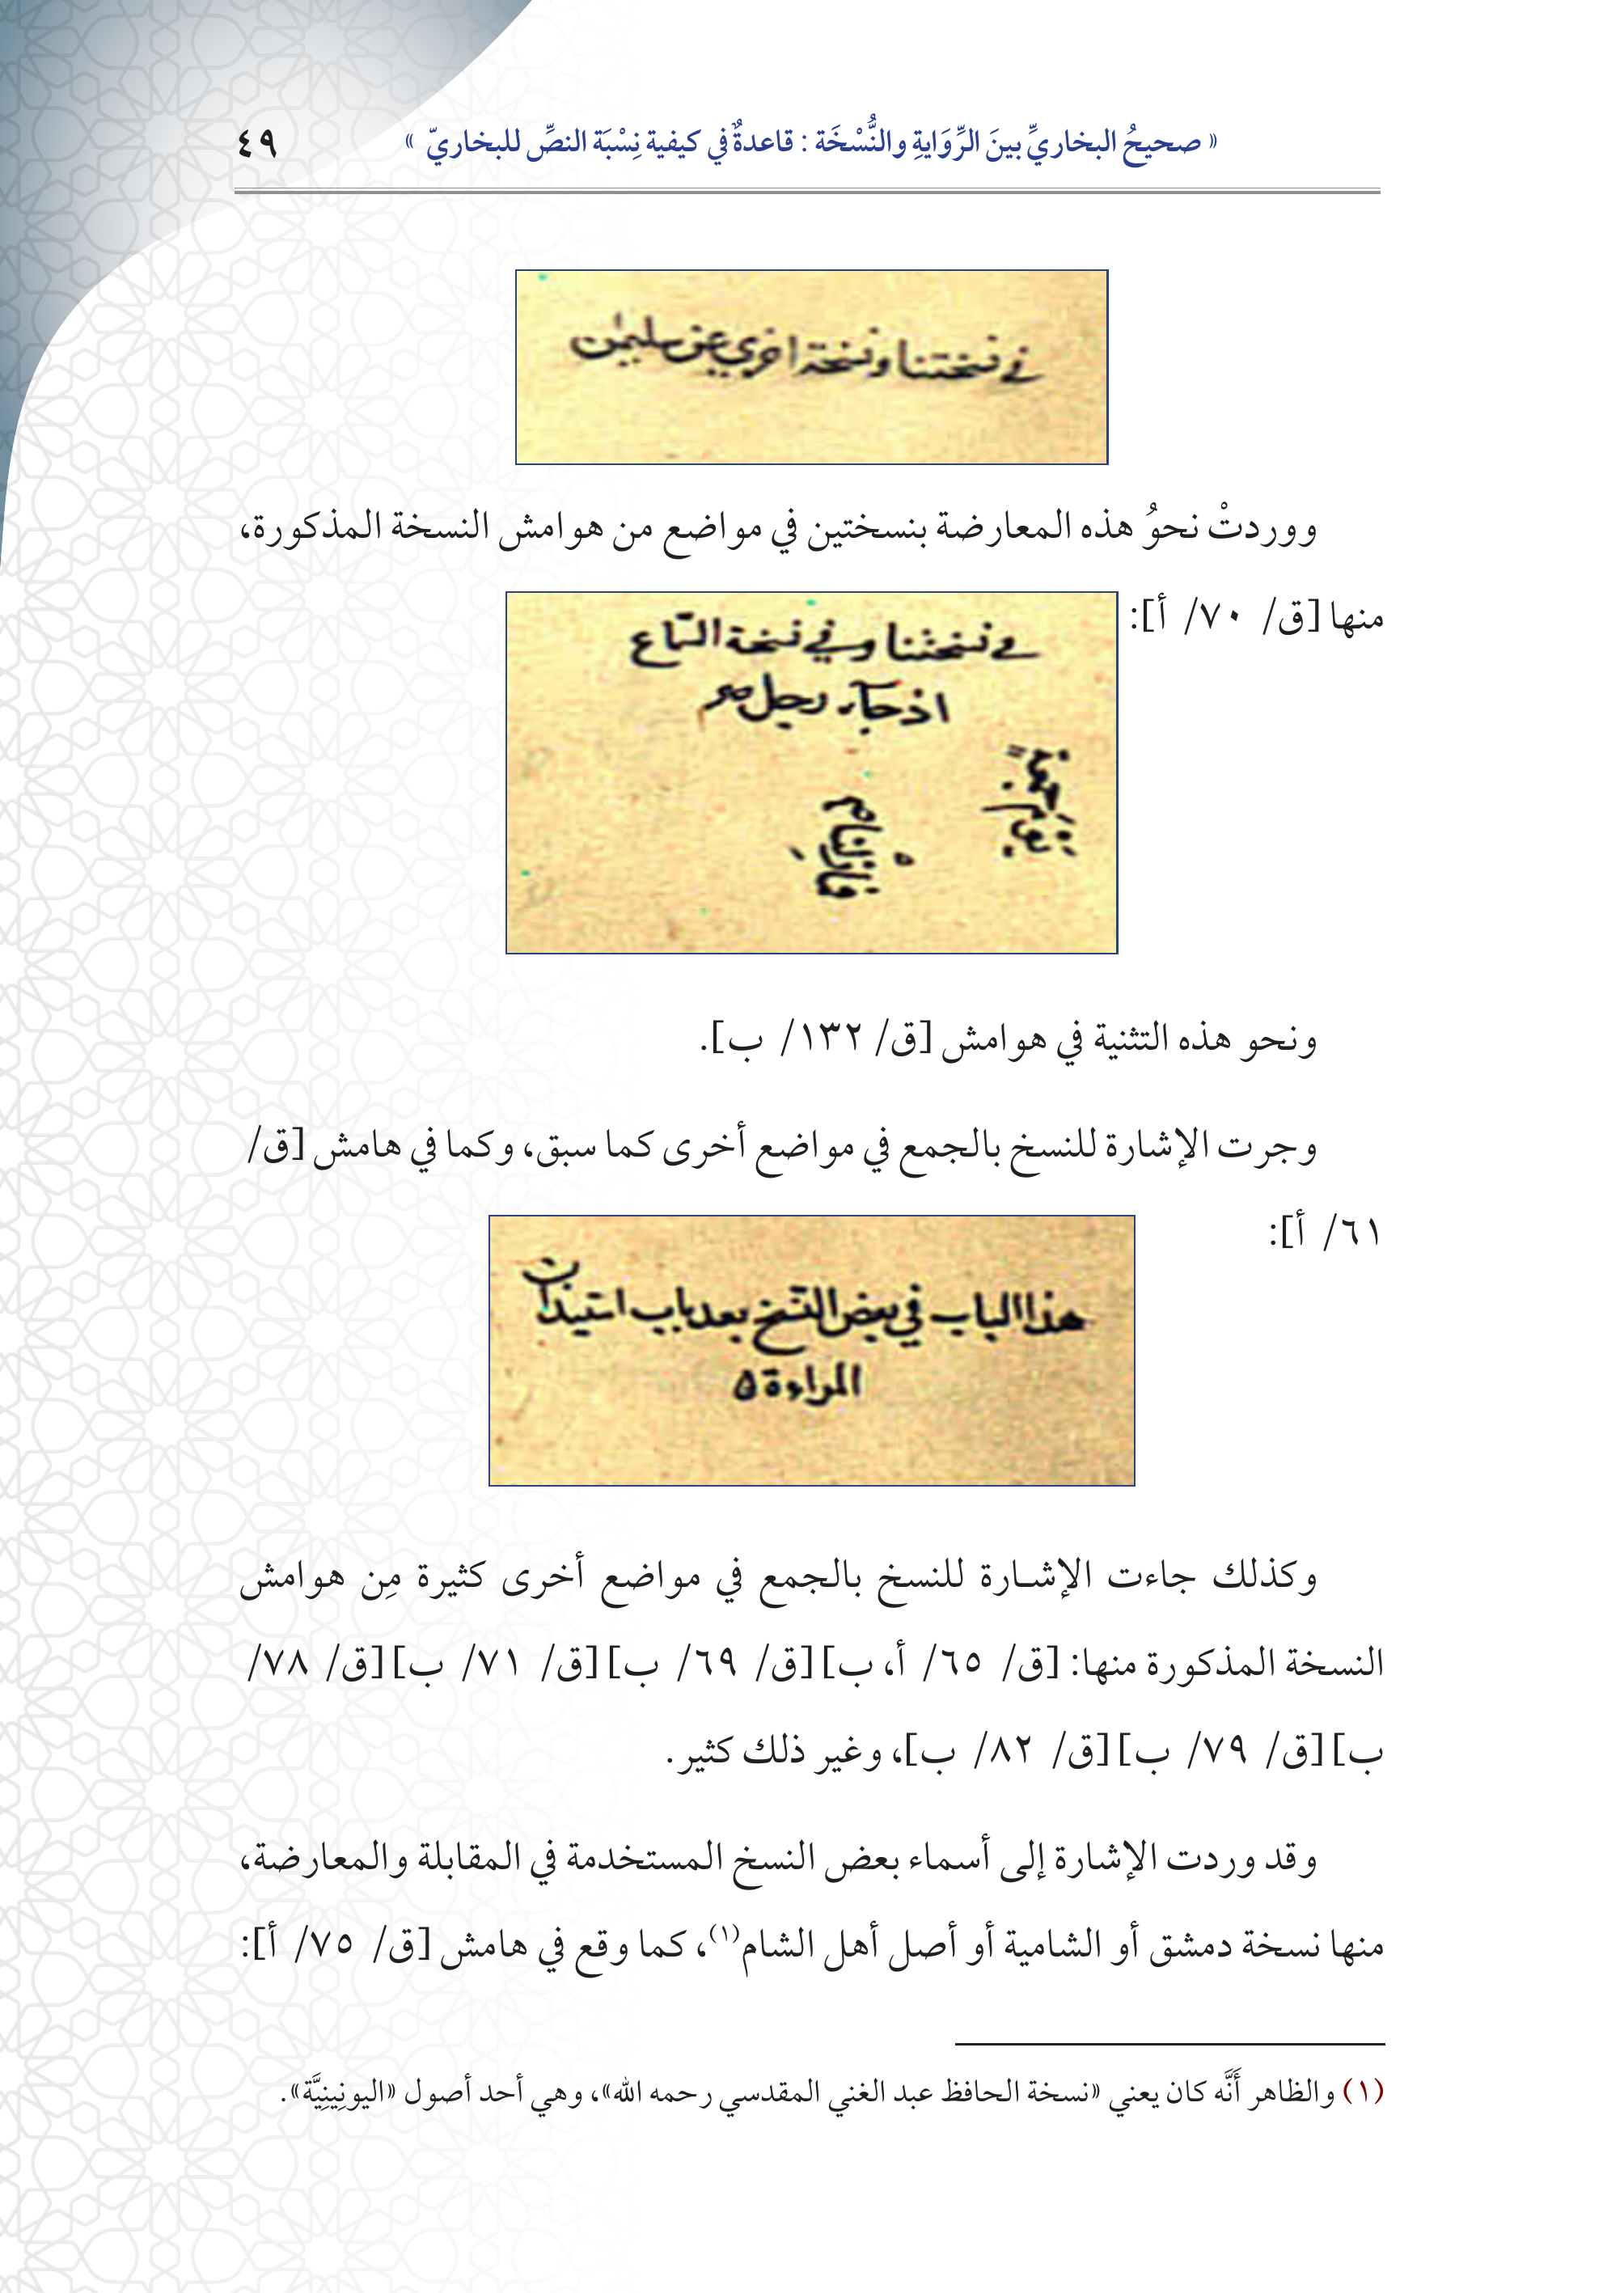 « صحيحُ البخاريِّ بينَ الرِّوَايةِ والنُّسْخَة : قاعدةٌ في كيفية نِسْبَة النصِّ للبخاريّ »
٤٩
في نسختنا ونسخة اخرى عن سليمن
ووردتْ نحوُ هذه المعارضة بنسختين في مواضع من هوامش النسخة المذكورة،
منها [ق/ ٧٠/ أ]:
في نسختنا وفي نسخة السماع
اذ جاء رجل
ونحو هذه التثنية في هوامش [ق/ ١٣٢/ ب].
وجرت الإشارة للنسخ بالجمع في مواضع أخرى كما سبق، وكما في هامش [ق/
٦١/ أ]:
هذا الباب في بعض النسخ بعد باب استيذان
المراءة ٥
وكذلك جاءت الإشارة للنسخ بالجمع في مواضع أخرى كثيرة مِن هوامش
النسخة المذكورة منها: [ق/ ٦٥/ أ، ب] [ق/ ٦٩/ ب] [ق/ ٧١/ ب] [ق/ ٧٨/
ب] [ق/ ٧٩/ ب] [ق/ ٨٢/ ب]، وغير ذلك كثير.
وقد وردت الإشارة إلى أسماء بعض النسخ المستخدمة في المقابلة والمعارضة،
منها نسخة دمشق أو الشامية أو أصل أهل الشام(١)، كما وقع في هامش [ق/ ٧٥/ أ]:
(١) والظاهر أَنَّه كان يعني «نسخة الحافظ عبد الغني المقدسي رحمه الله»، وهي أحد أصول «اليونِينِيَّة».